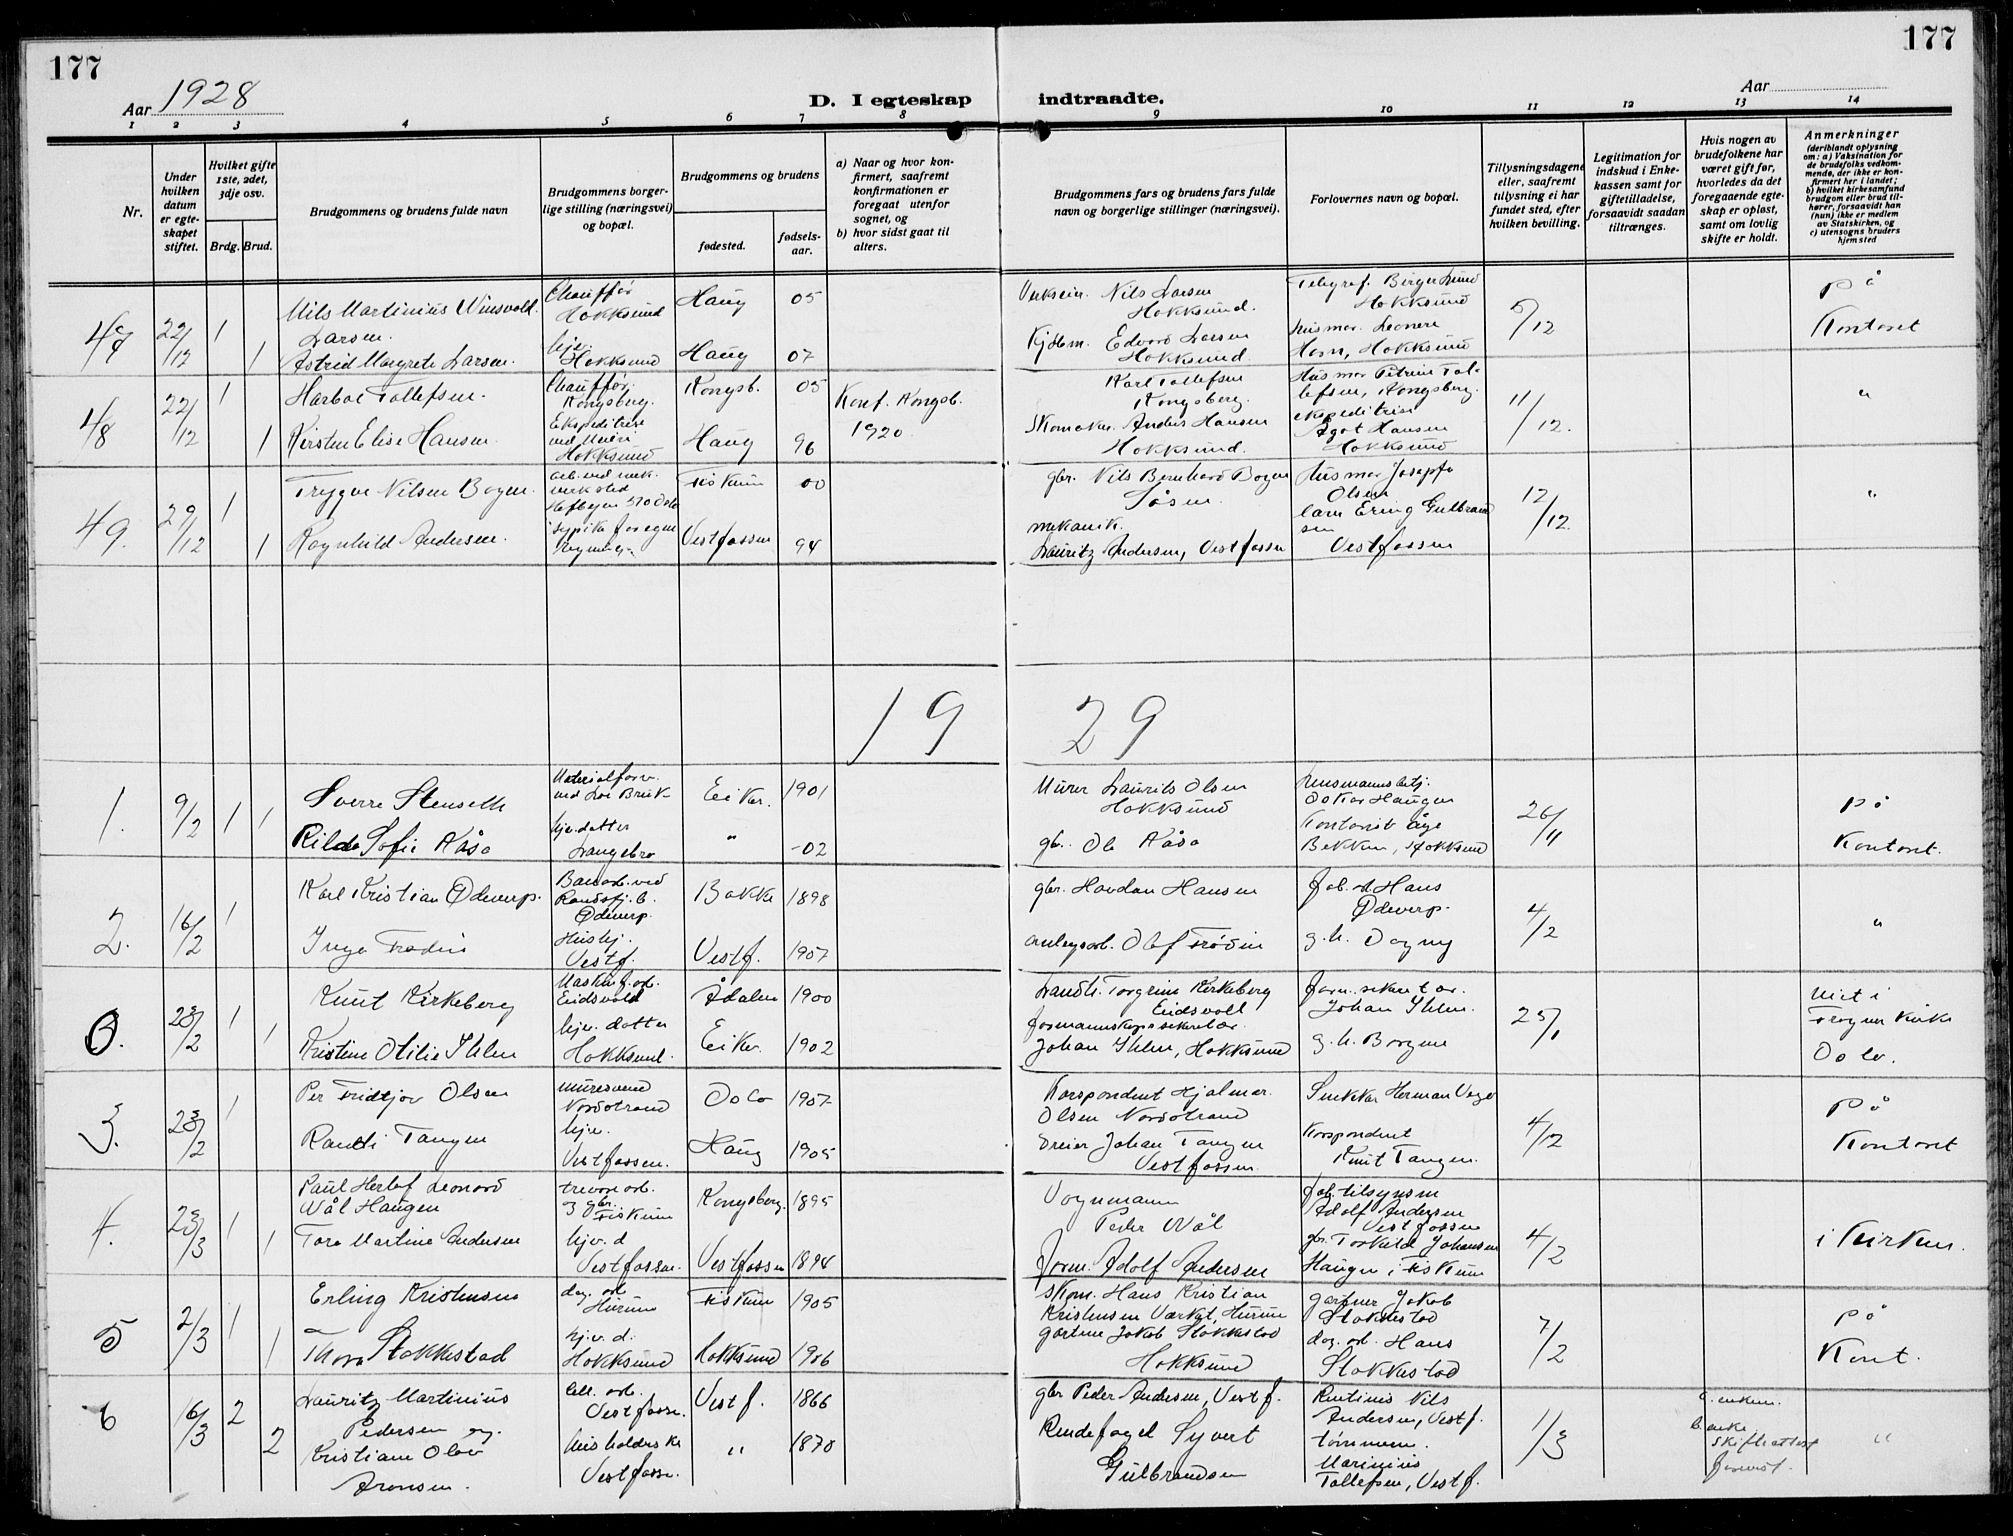 177
177
Aar 1928
D. I egteskap
indtraadte.
Aar
1 2 3 4 5 6 7 8
9 10 11 12 13 14
Nr.
Under hvilken datum er egteskapet stiftet.
Hvilket gifte 1ste, 2det, 3dje osv.
Brdg. Brud.
Brudgommens og brudens fulde navn
Brudgommens borgerlige stilling (næringsvei) og bopæl.
Brudgommens og brudens
fødested.
fødselsaar.
a) Naar og hvor konfirmert, saafremt konfirmationen er foregaat utenfor sognet, og
b) hvor sidst gaat til alters.
Brudgommens fars og brudens fars fulde navn og borgerlige stillinger (næringsvei).
Forlovernes navn og bopæl.
Tillysningsdagene eller, saafremt tillysning ei har fundet sted, efter hvilken bevilling.
Legitimation for indskud i Enkekassen samt for giftetilladelse, forsaavidt saadan tiltrænges.
Hvis nogen av brudefolkene har været gift før, hvorledes da det foregaaende egteskap er opløst, samt om lovlig skifte er holdt.
Anmerkninger
(deriblandt oplysning om: a) Vaksination for de brudefolks vedkommende, der ikke er konfirmert her i landet; b) hvilket kirkesamfund brudgom eller brud tilhører, forsaavidt han (hun) ikke er medlem av Statskirken, og c) utensogns bruders hjemsted
47 22/12 1 Nils Martinius Winsvold Larsen Chauffør Hokksund Haug 05 Nils Larsen Hokksund. Telegraf. Birger Lund Hokksund 5/12 på Kontoret
1 Astrid Margrete Larsen. hjv. Hokksund Haug 07 Kjøbm. Edvard Larsen Hokksund. husmor Leonore Horn, Hokksund
48 22/12 1 Harbo Tollefsen. Chauffør. Kongsberg. Kongsb. 05 Konf. Kongsb. 1920. Karl Tollefsen Kongsberg. Husmor Petrine Tollefsen, Kongsberg. 11/12. "
1 Kirsten Elise Hansen. Ekspeditrise ved Meieri Hokksund Haug 96 Skomaker. Anders Hansen Hokksund. ekspeditrise Agot Hansen Hokksund
49. 29/12 1 Trygve Nilsen Bogen. arb. ved mek. verksted Fiskum 00 gbr. Nils Bernhard Bogen Husmor Josepha Olsen 12/12. "
1 Ragnhild Andersen. sypike for egen regning Vestfossen 94 mekanik. Lauritz Andersen, Vestfossen Erling Gulbrandsen Vestfossen
19 29
1. 9/2 1 1 Sverre Stenseth Materialforv. ved Bruk Eiker. 1901 Murer Laurits Olsen Hokksund Lensmannsbetj. Oskar Haugen 26/11 på Kontoret.
Rilda Sofie Kåsa hjv. datter Langebro " -02 gbr. Ole Kåsa Kontorist Åge Bekken, Hokksund
2. 16/2 1 Karl Kristian Ødeverp. Banearb. ved Randsfj. b. Ødeverp. Bakke 1898 gbr. Hovdan Hansen fab. arb. Hans Ødeverp. 4/2 "
Inga Frødin Hushj. Vestf. Vestf. 1907 anlegsarb. Olaf Frødin g. h. Dagny
0. 23/2 1 Knut Kirkeberg Maskinf. arb. Eidsvold Ådalen 1900 Landh. Torgrim Kirkeberg Eidsvoll form. sekretær. Johan Ihlen. 25/1 Viet i Frogner kirke Oslo.
1 Kristine Otilie Ihlen hjv. datter Hokksund. Eiker. 1902 formannskapssekretær. Johan Ihlen, Hokksund g. h. Borgine
3. 23/2 1 Per Fridtjov Olsen Muresvend Nordstrand Oslo 1907 Korspondent Hjalmar. Olsen Nordstrand Snekker Herman 4/12 på Kontoret
Randi Tangen hjv. Vestfossen. Haug 1905 Dreier Johan Tangen Vestfossen. Korspondent Knut Tangen.
4. 23/3 1 Paul Herlof Leonard Wål Haugen arb. og gbr. Fiskum Kongsberg. 1895 Vognmann Peder Wål fab. tilsynsm Adolf Andersen Vestfossen 4/2 i Kirken.
1 Tora Martine Andersen hjv. d Vestfossen. Vestfossen 1894 form. Adolf Andersen gbr. Torkild Johansen Haugen i Fiskum
5 2/3 1 Erling Kristensen dag. arb Hurum Fiskum 1905 Skom. Hans Kristian Kristensen Værket, Hurum gartner Jakob Stokkestad 7/2 på Kont.
1 Thora Stokkestad hjv. d. Hokksund Hokksund 1906 gartner Jakob Stokkestad Hokksund dag. arb. Hans Stokkestad
6 16/3 2 Lauritz Martinius Pedersen og. Cell. arb. Vestfossen. Vestf. 1866 gbr Peder Andersen, Vestf. Rentinis Nils Andersen, Vestf. 1/3 a. enkem.
2 Kristiane Olava Aronsen. husholderske Vestfossen. " 1870 Rendefogd Syvert Gulbrandsen tømmerm. Marinius Tollefsen, Vestf. b. enke skifteattest forevist. "